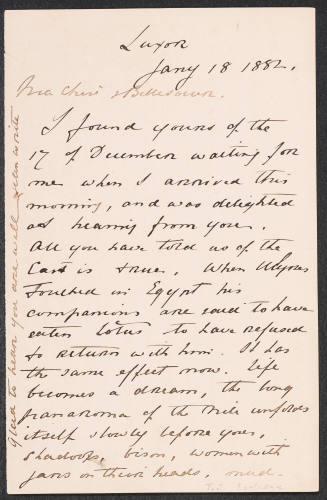 Luxor
Jany 18 1882.
Ma Chère
I found yours of the
17 of December waiting for
me when I arrived this
morning, and was delighted
at hearing from you.
All you have told us of the
East is true. When Ulysses
Touched in Egypt his
companions are said to have
eaten lotus to have refused
to return with him. It has
the same effect now. Life
becomes a dream, the long
panaroma of the Nile unfolds
itself slowly before you,
shadoofs, bison, women with
jars on their heads, mud-
Glad to hear you are well
write